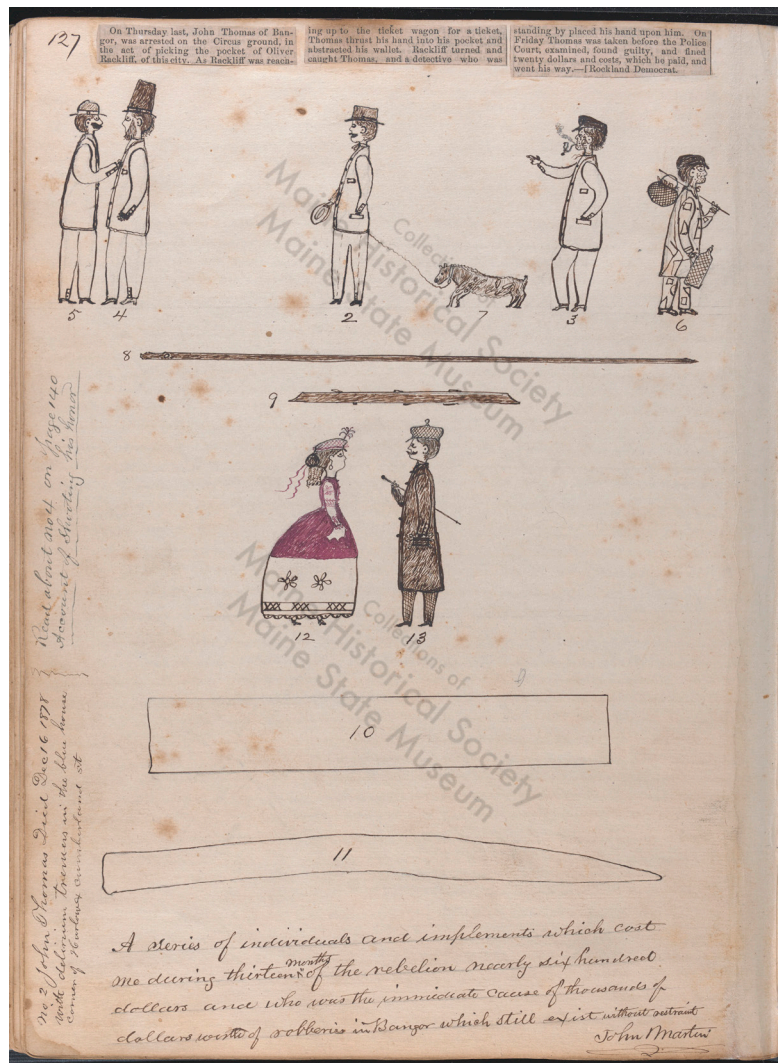 127
On Thursday last, John Thomas of Ban-
gor, was arrested on the Circus ground, in
the act of picking the pocket of Oliver
Rackliff, of this city. As Rackliff was reach-
ing up to the ticket wagon for a ticket,
Thomas thrust his hand into his pocket and
abstracted his wallet. Rackliff turned and
caught Thomas, and a detective who was
standing by placed his hand upon him. On
Friday Thomas was taken before the Police
Court, examined, found guilty, and fined
twenty dollars and costs, which he paid, and
went his way.—[Rockland Democrat.
5 4 2 7 3 6
8
9
12 13
10
11
Read about no 4 on page 140
Account of Shooting his honor
No. 2 John Thomas Died Dec 16 1878
with delirium tremens in the blue house
corner of Cumberland st
A series of individuals and implements which cost
me during thirteen months of the rebelion nearly six hundred
dollars and who was the immidiate cause of thousands of
dollars worth of robberies in Bangor which still exist without restraint
John Martin
Collections of
Maine Historical Society
Maine State Museum
Collections of
Maine Historical Society
Maine State Museum